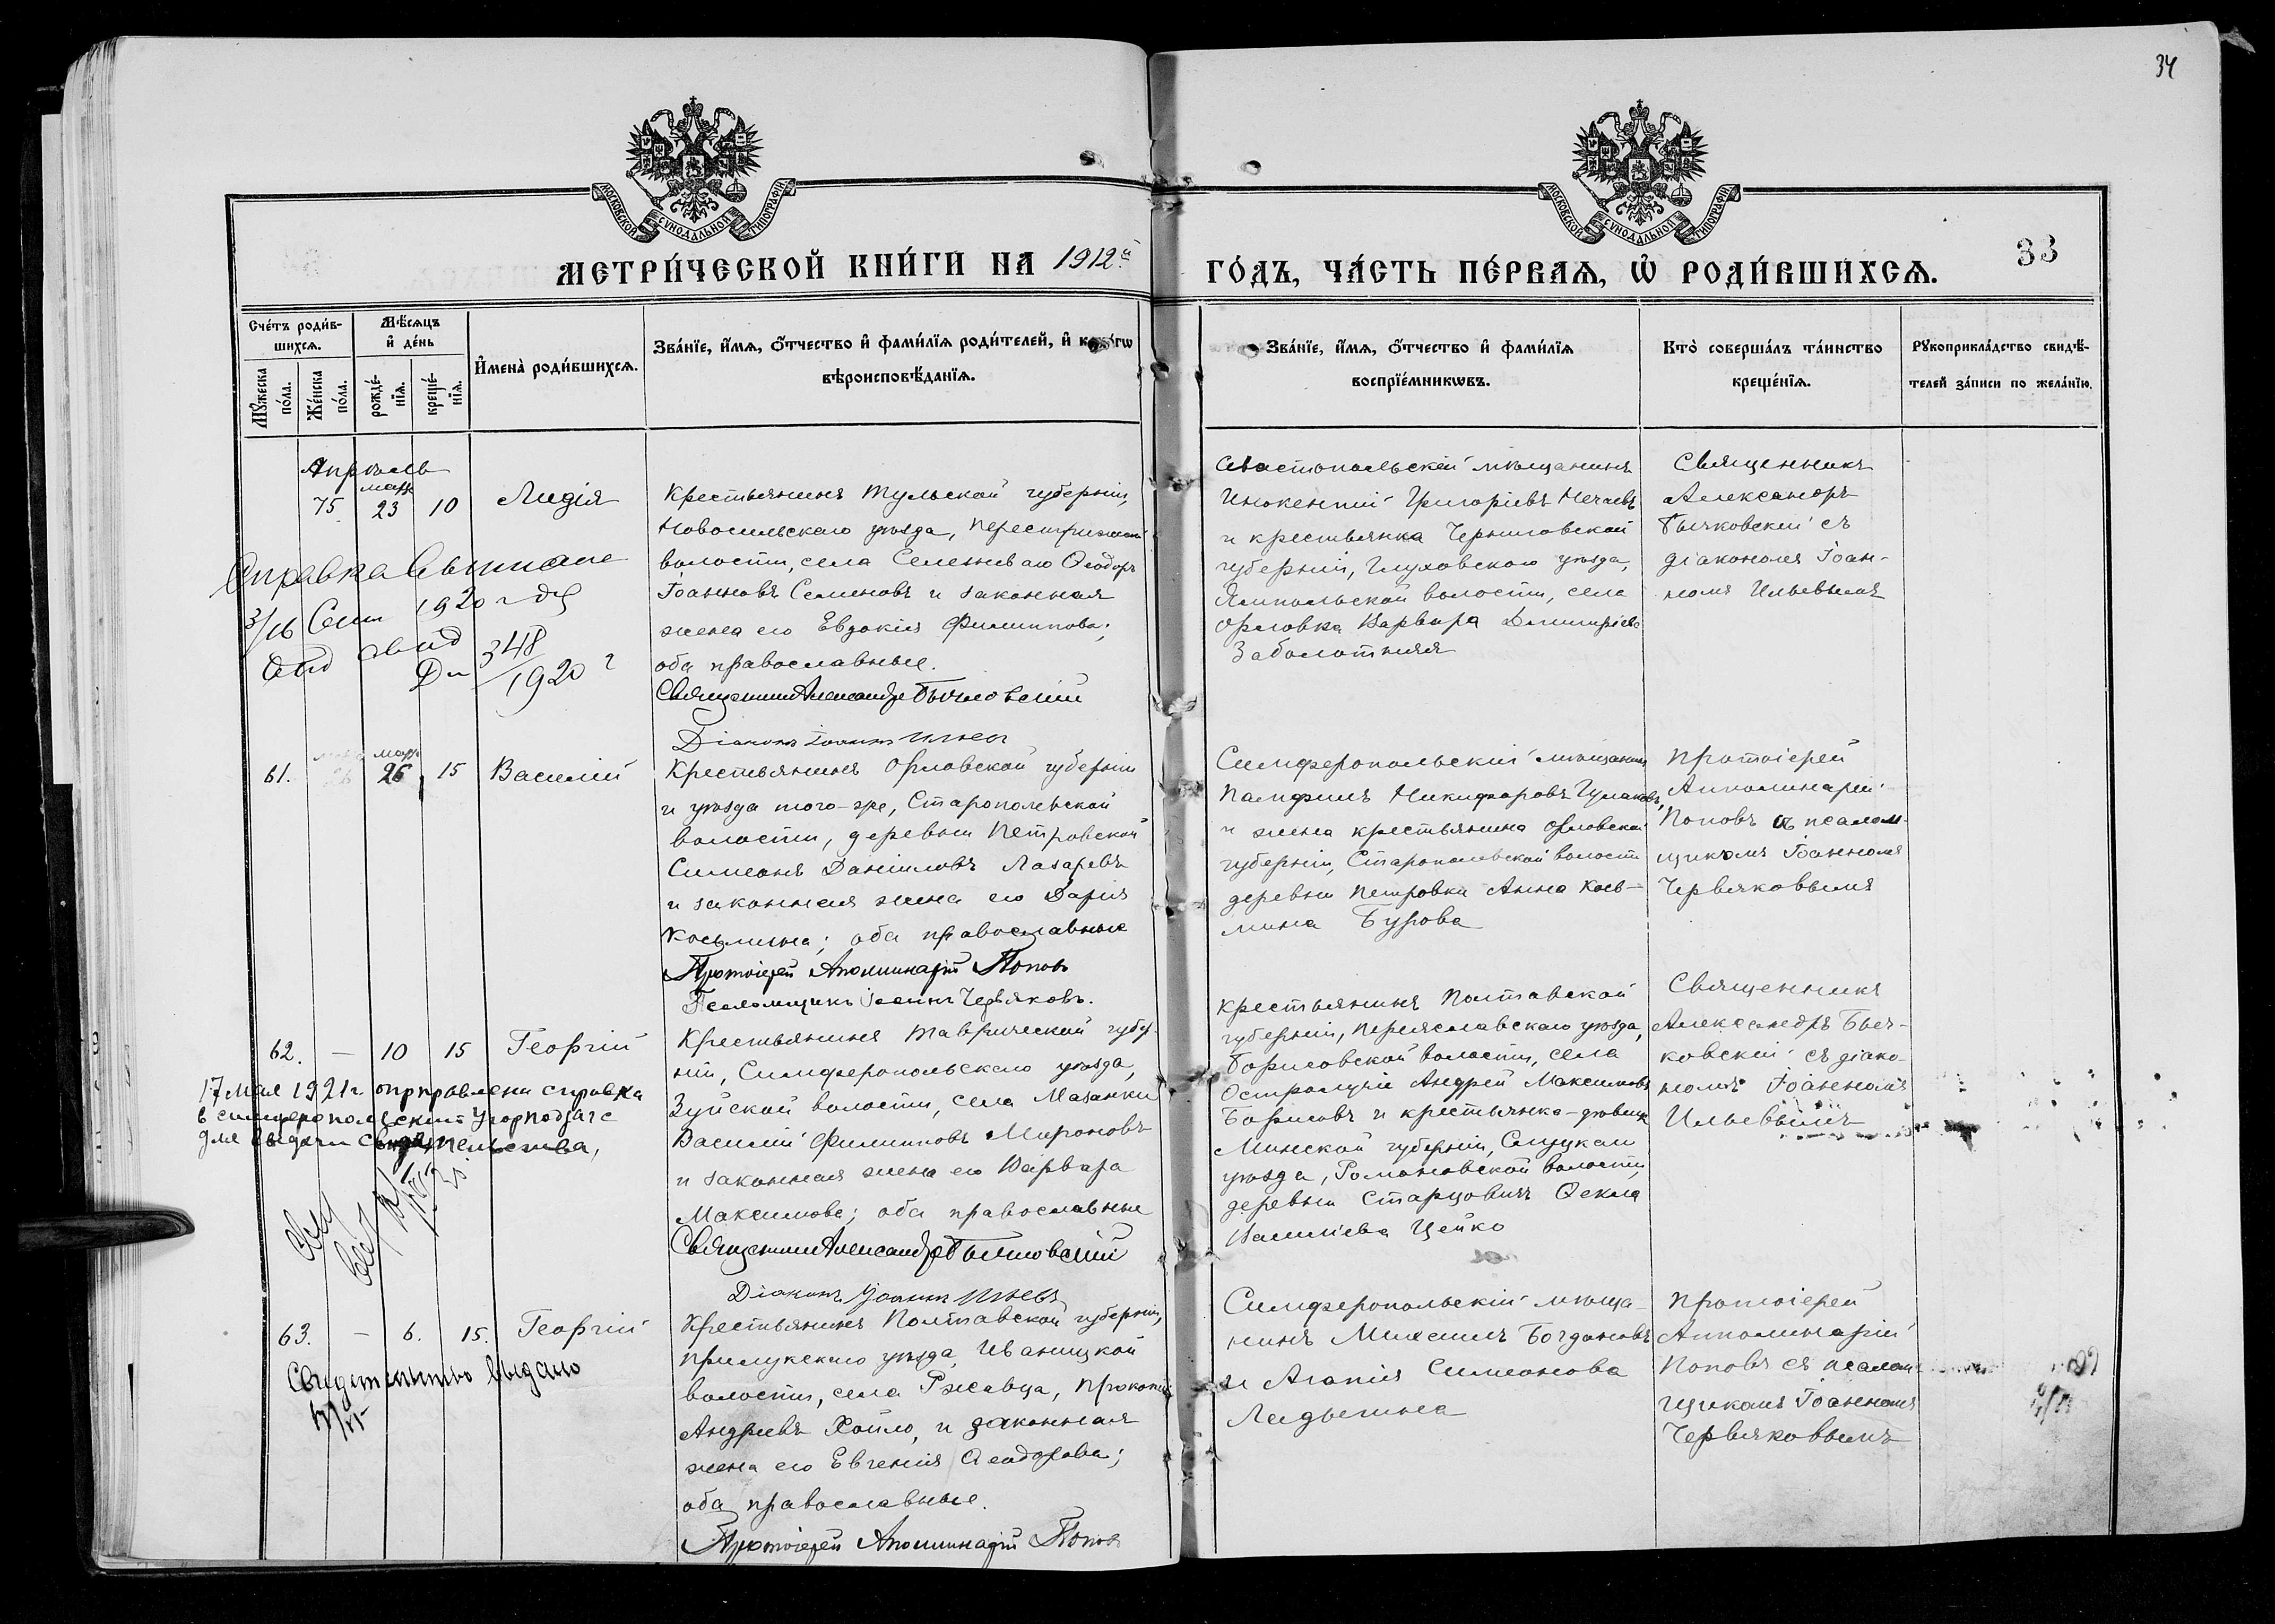 34
МОСКОВСКОЙ СУНОДАЛЬНОЙ ТИПОГРАФІИ
МОСКОВСКОЙ СУНОДАЛЬНОЙ ТИПОГРАФІИ
МЕТРИ́ЧЕСКОЙ КНИ́ГИ НА 1912й
ГО́ДЪ, ЧА́СТЬ ПЕ́РВАѦ, Ѽ РОДИ́ВШИХСѦ.
33
Сче́тъ роди́в-
шихсѧ.
Мѣ́сѧцъ
и де́нь
Мꙋ́жеска
по́ла.
Же́нска
по́ла.
рожде́-
нїѧ.
креще́-
нїѧ.
Имена̀ роди́вшихсѧ.
Зва́нїе, и́мѧ, ѻ́тчество и фами́лїѧ роди́телей, и како́гѡ
вѣроисповѣ́данїѧ.
Зва́нїе, и́мѧ, ѻ́тчество и фами́лїѧ
воспрїе́мникѡвъ.
Кто̀ соверша́лъ та́инство
креще́нїѧ.
Рꙋкоприкла́дство свидѣ́-
телей за́писи по жела́нїю.
Апрѣль
75 март 23 10 Лидія
Крестьянинъ Тульской губерніи,
Новосильскаго уѣзда,
волости, села Ѳеодоръ
Іоанновъ Семеновъ и законная
жена его Евдокія Филиппова;
оба православные.
Священникъ Александръ Бычковскій
Діаконъ Іоаннъ Ильевъ
Севастопольскій мѣщанинъ
Инокентій Григоріевъ Нечаевъ
и крестьянка Черниговской
губерніи, Глуховскаго уѣзда,
Ямпольской волости, села
Орловка Варвара Димитріева
Заболотняя
Священникъ
Александръ
Бычковскій съ
діакономъ Іоан-
номъ Ильевымъ
Справка
1920 года
348
1920 г
61. март 26 15 Василій
Крестьянинъ Орловской губерніи
и уѣзда того-же, Старопольской
волости, деревни Петровской
Симеонъ Даніиловъ Лазаревъ
и законная жена его Дарія
Косьмина; оба православные
Протоіерей Аполлинарій Поповъ
Псаломщикъ Іоаннъ Червяковъ.
Симферопольскій мѣщанинъ
Памфилъ Никифоровъ
и жена крестьянина Орловской
губерніи, Старопольской волости
деревни Петровки Анна Кось-
мина Бурова
Протоіерей
Апполинарій
Поповъ съ псалом-
щикомъ Іоанномъ
Червяковымъ
62. — 10 15 Георгій
Крестьянинъ Таврической губер-
ніи, Симферопольскаго уѣзда,
Зуйской волости, села Мазанки
Василій Филипповъ Мироновъ
и законная жена его Варвара
Максимова; оба православные
Священникъ Александръ Бычковскій
Діаконъ Іоаннъ Ильевъ
Крестьянинъ Полтавской
губерніи, Переяславскаго уѣзда,
волости, села
Андрей Максимовъ
Борисовъ и крестьянка-дѣвица
Минской губерніи, Слуцкаго
уѣзда, Романовской волости,
деревни Старцовичъ Ѳекла
Василіева Цейко
Священникъ
Александръ Быч-
ковскій съ діако-
номъ Іоанномъ
Ильевымъ
17 мая 1921 г отправлена справка
в симферопольский
для выдачи свидетельства,
63. — 6. 15. Георгій
Крестьянинъ Полтавской губерніи,
Прилукскаго уѣзда Иваницкой
волости, села Ржавца, Прокопій
Андреевъ Хойло, и законная
жена его Евгенія Ѳеодорова;
оба православные.
Протоіерей Аполлинарій Поповъ
Симферопольскій мѣща-
нинъ Михаилъ Богдановъ
и Агапія Симеонова
Ладыгина
Протоіерей
Апполинарій
Поповъ съ псалом
щикомъ Іоанномъ
Червяковымъ
Свидетельство выдано